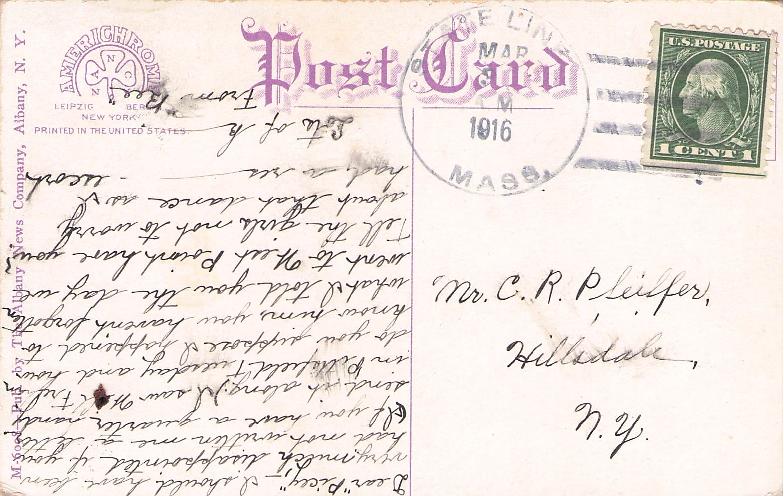 Post Card
AMERICHROME
LEIPZIG BER
NEW YORK
PRINTED IN THE UNITED STATES
M 6002 Pub. by The Albany News Company, Albany, N. Y.
LINE
MAR
M
1916
MASS.
U.S. POSTAGE
1 CENT 1
Mr. C. R. Pfeiffer,
Hillsdale,
N.Y.
Dear "Picey", - I should have been
very much disappointed if you
had not written me a letter
(If you have a quarter handy
send it along.) I saw
in Pittsfield Tuesday and how
do you suppose I happened to
know him, you havent forgotten
what I told you the day we
went to West Point have you?
Tell the girls not to worry
about that dance as I
had a escort.
Lots of
from "